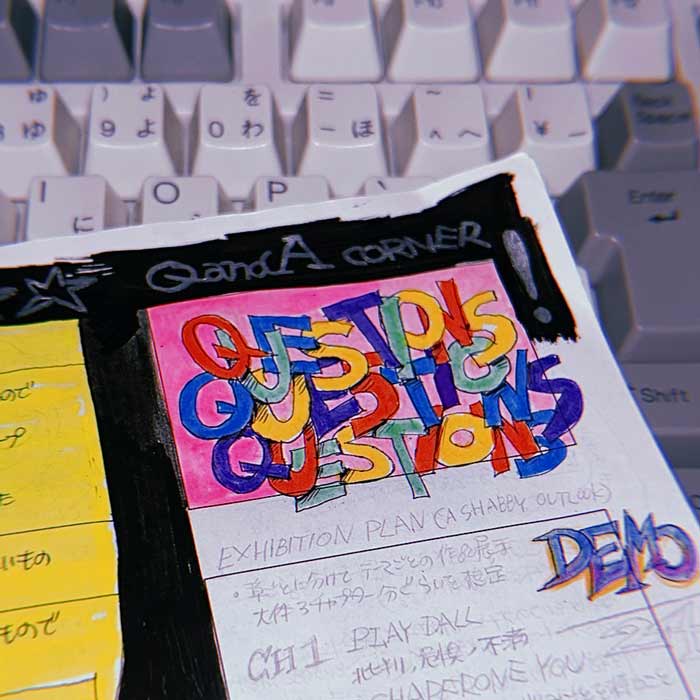 ゆ
8 ゆ
) よ
9 よ
を
0 わ
=
- ほ
~
^ へ
|
¥ _
Back Space
I
に
O
P
Enter
Shift
Q and A CORNER!
QUESTIONS
QUESTIONS
QUESTIONS
ので
いもの
もので
EXHIBITION PLAN (A SHABBY OUTLOOK)
・章ごとに分けて テーマごとの作品展示
大体3チャプター分ぐらいを想定
DEMO
CH1 PLAY DALL
CHAPERONE YOU